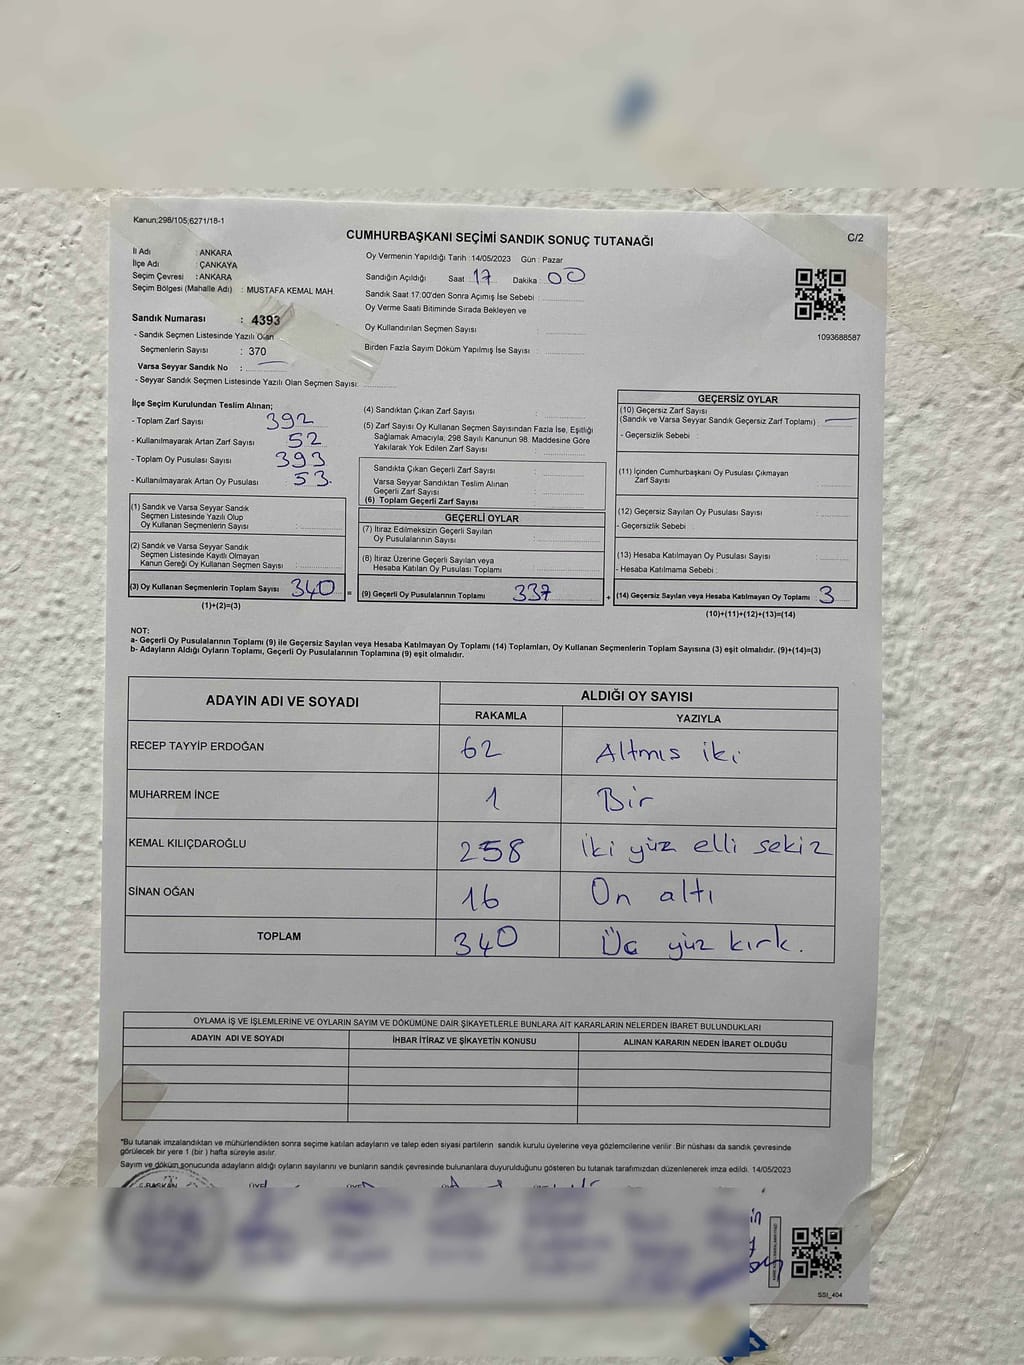 Kanun;298/105;6271/18-1
C/2
CUMHURBAŞKANI SEÇİMİ SANDIK SONUÇ TUTANAĞI
İl Adı : ANKARA
İlçe Adı : ÇANKAYA
Seçim Çevresi : ANKARA
Seçim Bölgesi (Mahalle Adı) : MUSTAFA KEMAL MAH.
Sandık Numarası : 4393
- Sandık Seçmen Listesinde Yazılı Olan
Seçmenlerin Sayısı : 370
Varsa Seyyar Sandık No :
- Seyyar Sandık Seçmen Listesinde Yazılı Olan Seçmen Sayısı:
Oy Vermenin Yapıldığı Tarih : 14/05/2023 Gün : Pazar
Sandığın Açıldığı Saat 17 Dakika : 00
Sandık Saat 17:00'den Sonra Açımış İse Sebebi :
Oy Verme Saati Bitiminde Sırada Bekleyen ve
Oy Kullandırılan Seçmen Sayısı :
Birden Fazla Sayım Döküm Yapılmış İse Sayısı :
1093688587
İlçe Seçim Kurulundan Teslim Alınan;
- Toplam Zarf Sayısı 392
- Kullanılmayarak Artan Zarf Sayısı 52
- Toplam Oy Pusulası Sayısı 393
- Kullanılmayarak Artan Oy Pusulası 53.
(1) Sandık ve Varsa Seyyar Sandık
Seçmen Listesinde Yazılı Olup
Oy Kullanan Seçmenlerin Sayısı :
(2) Sandık ve Varsa Seyyar Sandık
Seçmen Listesinde Kayıtlı Olmayan
Kanun Gereği Oy Kullanan Seçmen Sayısı :
(3) Oy Kullanan Seçmenlerin Toplam Sayısı 340 =
(1)+(2)=(3)
(4) Sandıktan Çıkan Zarf Sayısı :
(5) Zarf Sayısı Oy Kullanan Seçmen Sayısından Fazla İse, Eşitliği
Sağlamak Amacıyla; 298 Sayılı Kanunun 98. Maddesine Göre
Yakılarak Yok Edilen Zarf Sayısı :
Sandıkta Çıkan Geçerli Zarf Sayısı :
Varsa Seyyar Sandıktan Teslim Alınan
Geçerli Zarf Sayısı :
(6) Toplam Geçerli Zarf Sayısı
GEÇERLİ OYLAR
(7) İtiraz Edilmeksizin Geçerli Sayılan
Oy Pusulalarının Sayısı :
(8) İtiraz Üzerine Geçerli Sayılan veya
Hesaba Katılan Oy Pusulası Toplamı :
(9) Geçerli Oy Pusulalarının Toplamı 337 +
GEÇERSİZ OYLAR
(10) Geçersiz Zarf Sayısı
(Sandık ve Varsa Seyyar Sandık Geçersiz Zarf Toplamı) :
- Geçersizlik Sebebi :
(11) İçinden Cumhurbaşkanı Oy Pusulası Çıkmayan
Zarf Sayısı :
(12) Geçersiz Sayılan Oy Pusulası Sayısı :
- Geçersizlik Sebebi :
(13) Hesaba Katılmayan Oy Pusulası Sayısı :
- Hesaba Katılmama Sebebi :
(14) Geçersiz Sayılan veya Hesaba Katılmayan Oy Toplamı : 3
(10)+(11)+(12)+(13)=(14)
NOT:
a- Geçerli Oy Pusulalarının Toplamı (9) ile Geçersiz Sayılan veya Hesaba Katılmayan Oy Toplamı (14) Toplamları, Oy Kullanan Seçmenlerin Toplam Sayısına (3) eşit olmalıdır. (9)+(14)=(3)
b- Adayların Aldığı Oyların Toplamı, Geçerli Oy Pusulalarının Toplamına (9) eşit olmalıdır.
ADAYIN ADI VE SOYADI ALDIĞI OY SAYISI
RAKAMLA YAZIYLA
RECEP TAYYİP ERDOĞAN 62 Altmıs iki
MUHARREM İNCE 1 Bir
KEMAL KILIÇDAROĞLU 258 iki yüz elli sekiz
SİNAN OĞAN 16 On altı
TOPLAM 340 Üç yüz kırk.
OYLAMA İŞ VE İŞLEMLERİNE VE OYLARIN SAYIM VE DÖKÜMÜNE DAİR ŞİKAYETLERLE BUNLARA AİT KARARLARIN NELERDEN İBARET BULUNDUKLARI
ADAYIN ADI VE SOYADI İHBAR İTİRAZ VE ŞİKAYETİN KONUSU ALINAN KARARIN NEDEN İBARET OLDUĞU
*Bu tutanak imzalandıktan ve mühürlendikten sonra seçime katılan adayların ve talep eden siyasi partilerin sandık kurulu üyelerine veya gözlemcilerine verilir. Bir nüshası da sandık çevresinde
görülecek bir yere 1 (bir ) hafta süreyle asılır.
Sayım ve döküm sonucunda adayların aldığı oyların sayılarını ve bunların sandık çevresinde bulunanlara duyurulduğunu gösteren bu tutanak tarafımızdan düzenlenerek imza edildi. 14/05/2023
BAŞKAN
SSI_404